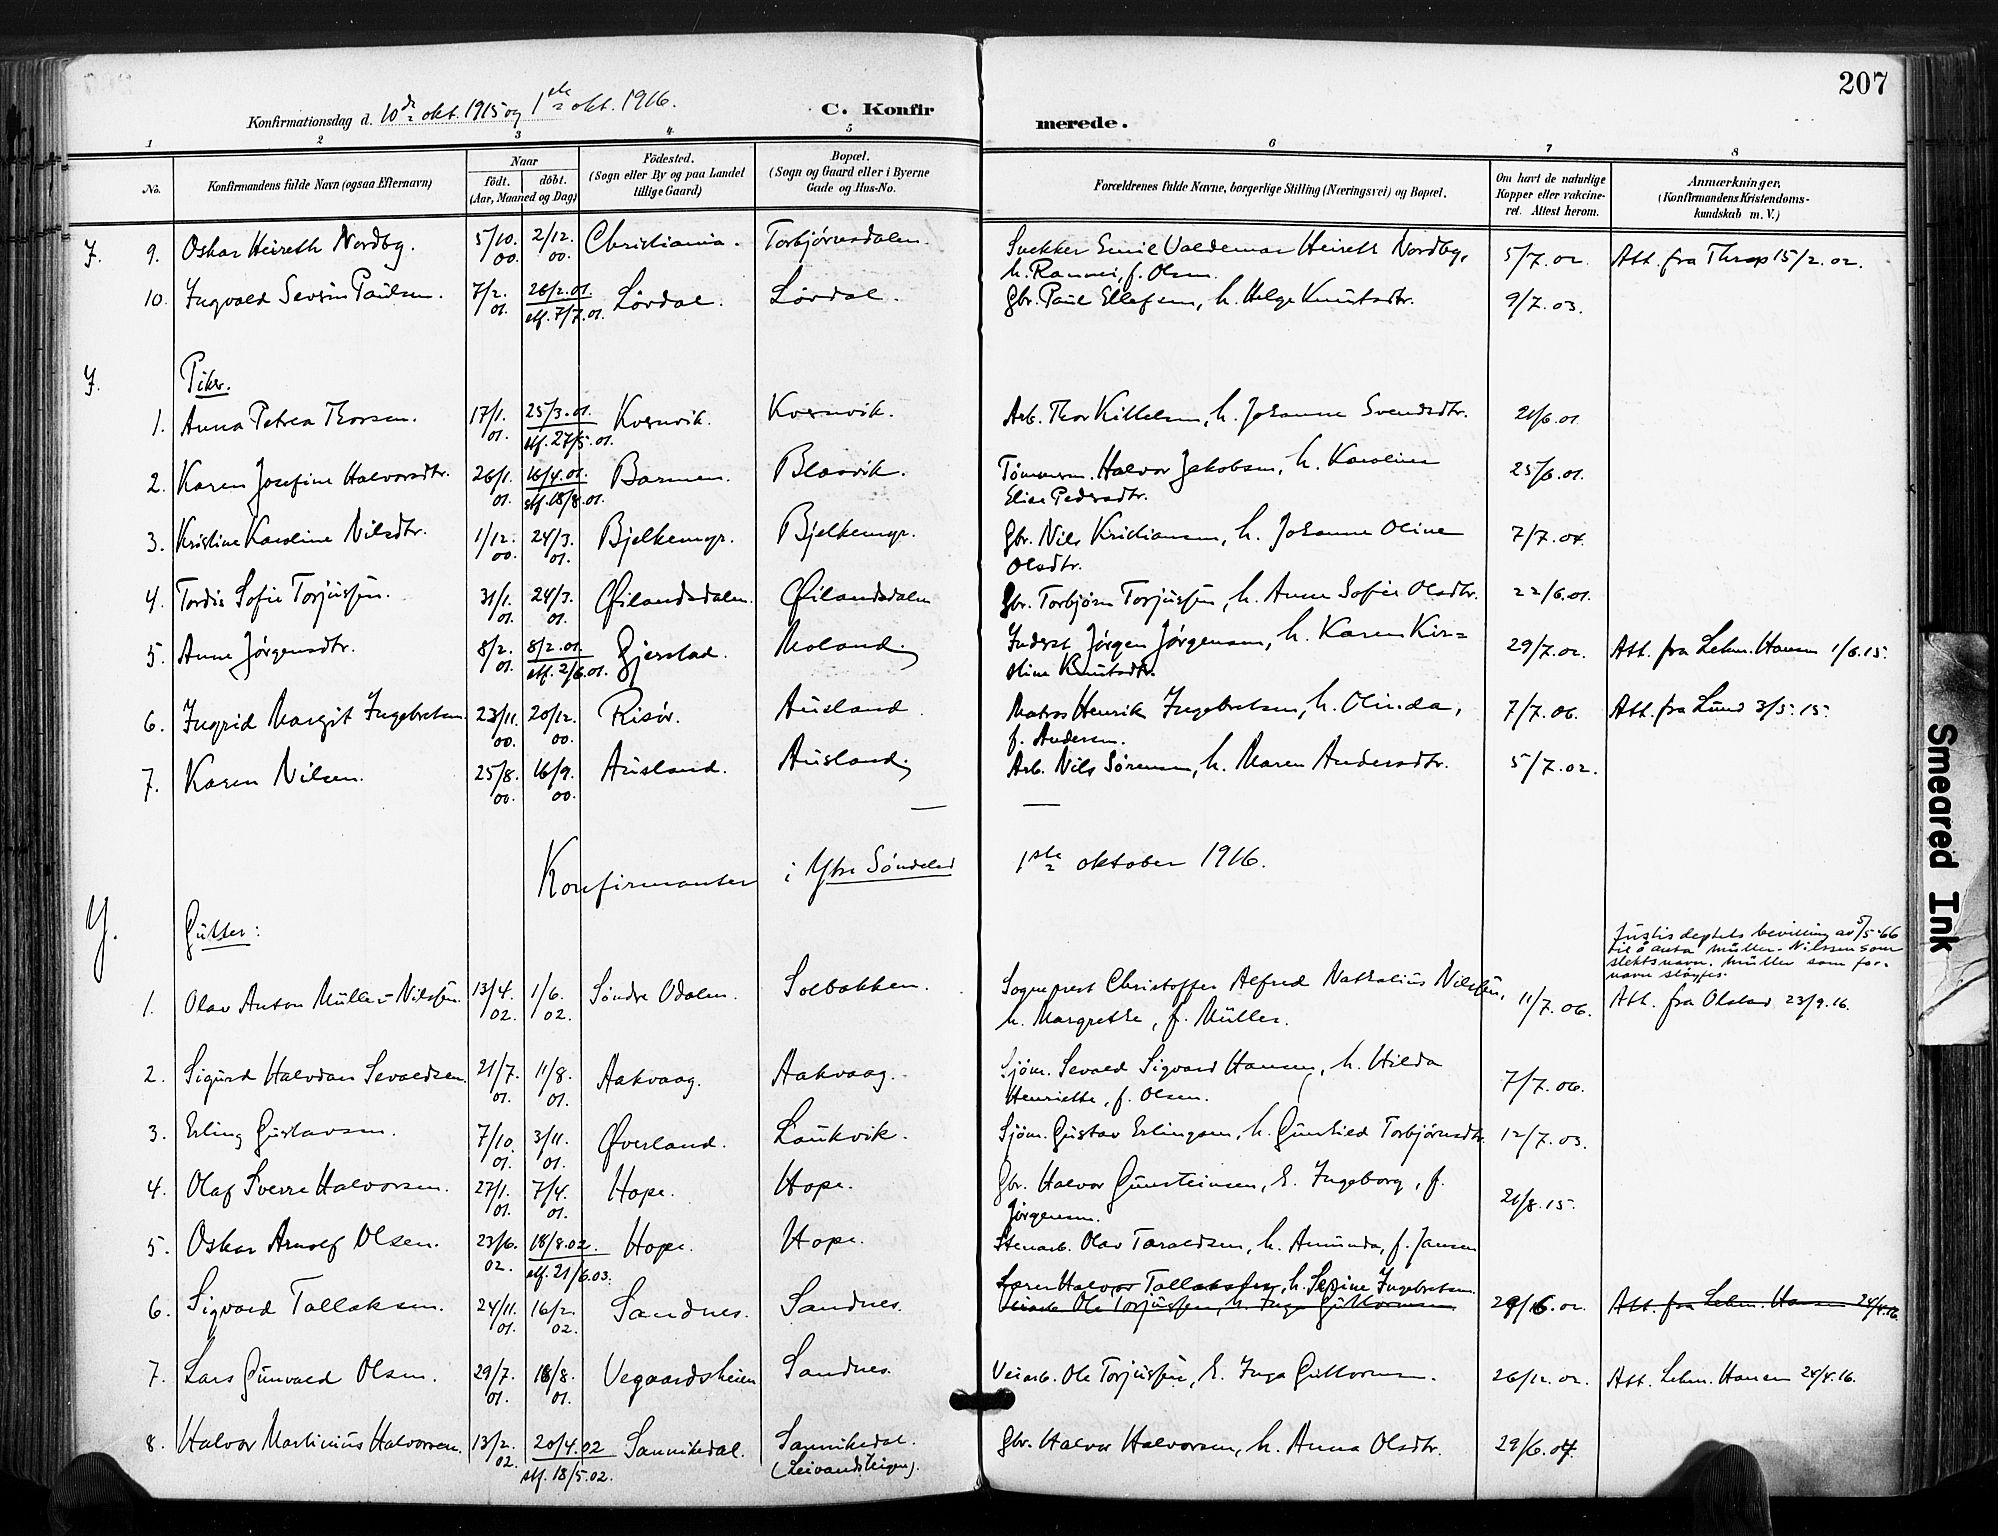 207
Konfirmationsdag d. 10de okt. 1915 og 1ste okt. 1916.
C. Konfirmerede.
1 2 3 4 5 6 7 8
No. Konfirmandens fulde Navn (ogsaa Efternavn) Naar født. døbt. (Aar, Maaned og Dag) Födested. (Sogn eller By og paa Landet tillige Gaard) Bopæl. (Sogn og Gaard eller i Byerne Gade og Hus-No. Forældrenes fulde Navne, borgerlige Stilling (Næringsvei) og Bopæl. Om havt de naturlige Kopper eller vakcineret. Attest herom. Anmærkninger. (Konfirmandens Kristendomskundskab m. V.)
9. Oskar Heireth Nordby. 5/10. 00. 2/12. 00. Christiania. Torbjørnsdalen. Snekker Emil Valdemar Heireth Nordby, h. Rannei, f. Olsen. 5/7. 02. Att. fra Throp 15/2. 02.
10. Ingvald Severin Paulsen. 7/2. 01. 26/2. 01. stf. 7/7. 01. Lørdal. Lørdal. Gbr. Paul Ellefsen, h. Helge Knutsdtr. 9/7. 03.
Piker.
1. Anna Petrea Thorsen. 17/1. 01. 25/3. 01. stf. 27/5. 01. Kvernvik. Kvernvik. Arb. Thor Kittelsen, h. Johanne Svendsdtr. 21/6. 01.
2. Karen Josefine Halvorsdtr. 26/1. 01. 16/4. 01. stf. 18/8. 01. Barmen. Blaavik. Tømmerm. Halvor Jakobsen, h. Karoline Elise Pedersdtr. 25/6. 01.
3. Kristine Karoline Nilsdtr. 1/12. 00. 24/3. 01. Bjelkemyr. Bjelkemyr. Gbr. Nils Kristiansen, h. Johanne Oline Olsdtr. 7/7. 04.
4. Tordis Sofie Torjussen. 31/1. 01. 24/3. 01. Øilandsdalen. Øilandsdalen Gbr. Torbjørn Torjussen, h. Anne Sofie Olsdtr. 22/6. 01.
5. Anne Jørgensdtr. 8/2. 01. 8/2. 01. stf. 2/6. 01. Gjerstad. Moland. Inderst Jørgen Jørgensen, h. Karen Kirstine Knutsdtr. 29/7. 02. Att. fra Lehm. Hansen 1/6. 15.
6. Ingrid Margit Ingebretsen 23/11. 00. 20/12. 00. Risør. Ausland. Matros Henrik Ingebretsen, h. Olinda, f. Andersen. 7/7. 06. Att. fra Lund 3/5. 15.
7. Karen Nilsen. 25/8. 00. 16/9. 00. Ausland. Ausland. Arb. Nils Sørensen, h. Maren Andersdtr. 5/7. 02.
Konfirmanter i Ytre Søndeled 1ste oktober 1916.
Y. Gutter:
Justis deptets bevilling av 5/5-66
til å anta Müller-Nilssen som
slektsnavn. Müller som for-
navn sløyfes.
1. Olav Anton Müller-Nilssen. 13/4. 02. 1/6. 02. Søndre Odalen. Solbakken. Sogneprest Christoffer Alfred Nathalius Nilssen, h. Margrethe, f. Müller. 11/7. 06. Att. fra Olstad 23/9. 16.
2. Sigurd Halvdan Sevaldsen. 21/7. 01. 11/8. 01. Aakvaag. Aakvaag. Sjøm. Sevald Sigvard Hansen, h. Hilda Henriette, f. Olsen. 7/7. 06.
3. Erling Gustavsen. 7/10. 01. 3/11. 01. Øverland. Laukvik. Sjøm. Gustav Erlingsen, h. Gunhild Torbjørnsdtr. 12/7. 03.
4. Olaf Sverre Halvorsen. 27/1. 01. 7/4. 01. Hope. Hope. Gbr. Halvor Gunsteinsen, h. Ingeborg, f. Jørgensen. 21/8. 15.
5. Oskar Arnolf Olsen. 23/6. 02. 18/8. 02. stf. 21/6. 03. Hope. Hope. Stenarb. Olav Taraldsen, h. Amunda, f. Jansen
6. Sigvard Tallaksen. 24/11. 01. 16/2. 02. Sandnes. Sandnes. Halvor Tallaksen, h. Serine Ingebretsen. Veiarb. Ole Torjussen, h. Inga Guttormsen 29/6. 02. Att. fra Lehm. Hansen 24/4. 16.
7. Lars Gunvald Olsen. 29/7. 01. 18/8. 01. Vegaardsheien Sandnes. Veiarb. Ole Torjussen, h. Inga Guttormsen. 26/12. 02. Att. Lehm. Hansen 24/4. 16.
8. Halvor Martinius Halvorsen. 13/2. 02. 20/4. 02 stf. 18/5. 02. Sannikedal. Sannikedal. (Leivandsteigen). Gbr. Halvor Halvorsen, h. Anna Olsdtr. 29/6. 04.
Smeared Ink